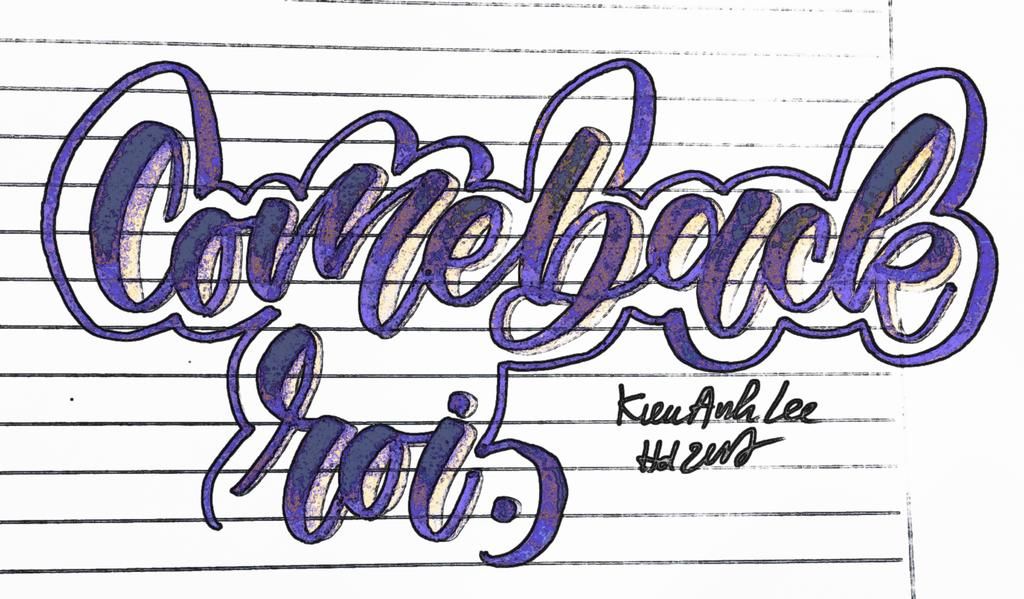 Comeback
roi.
Kieu Anh Lee